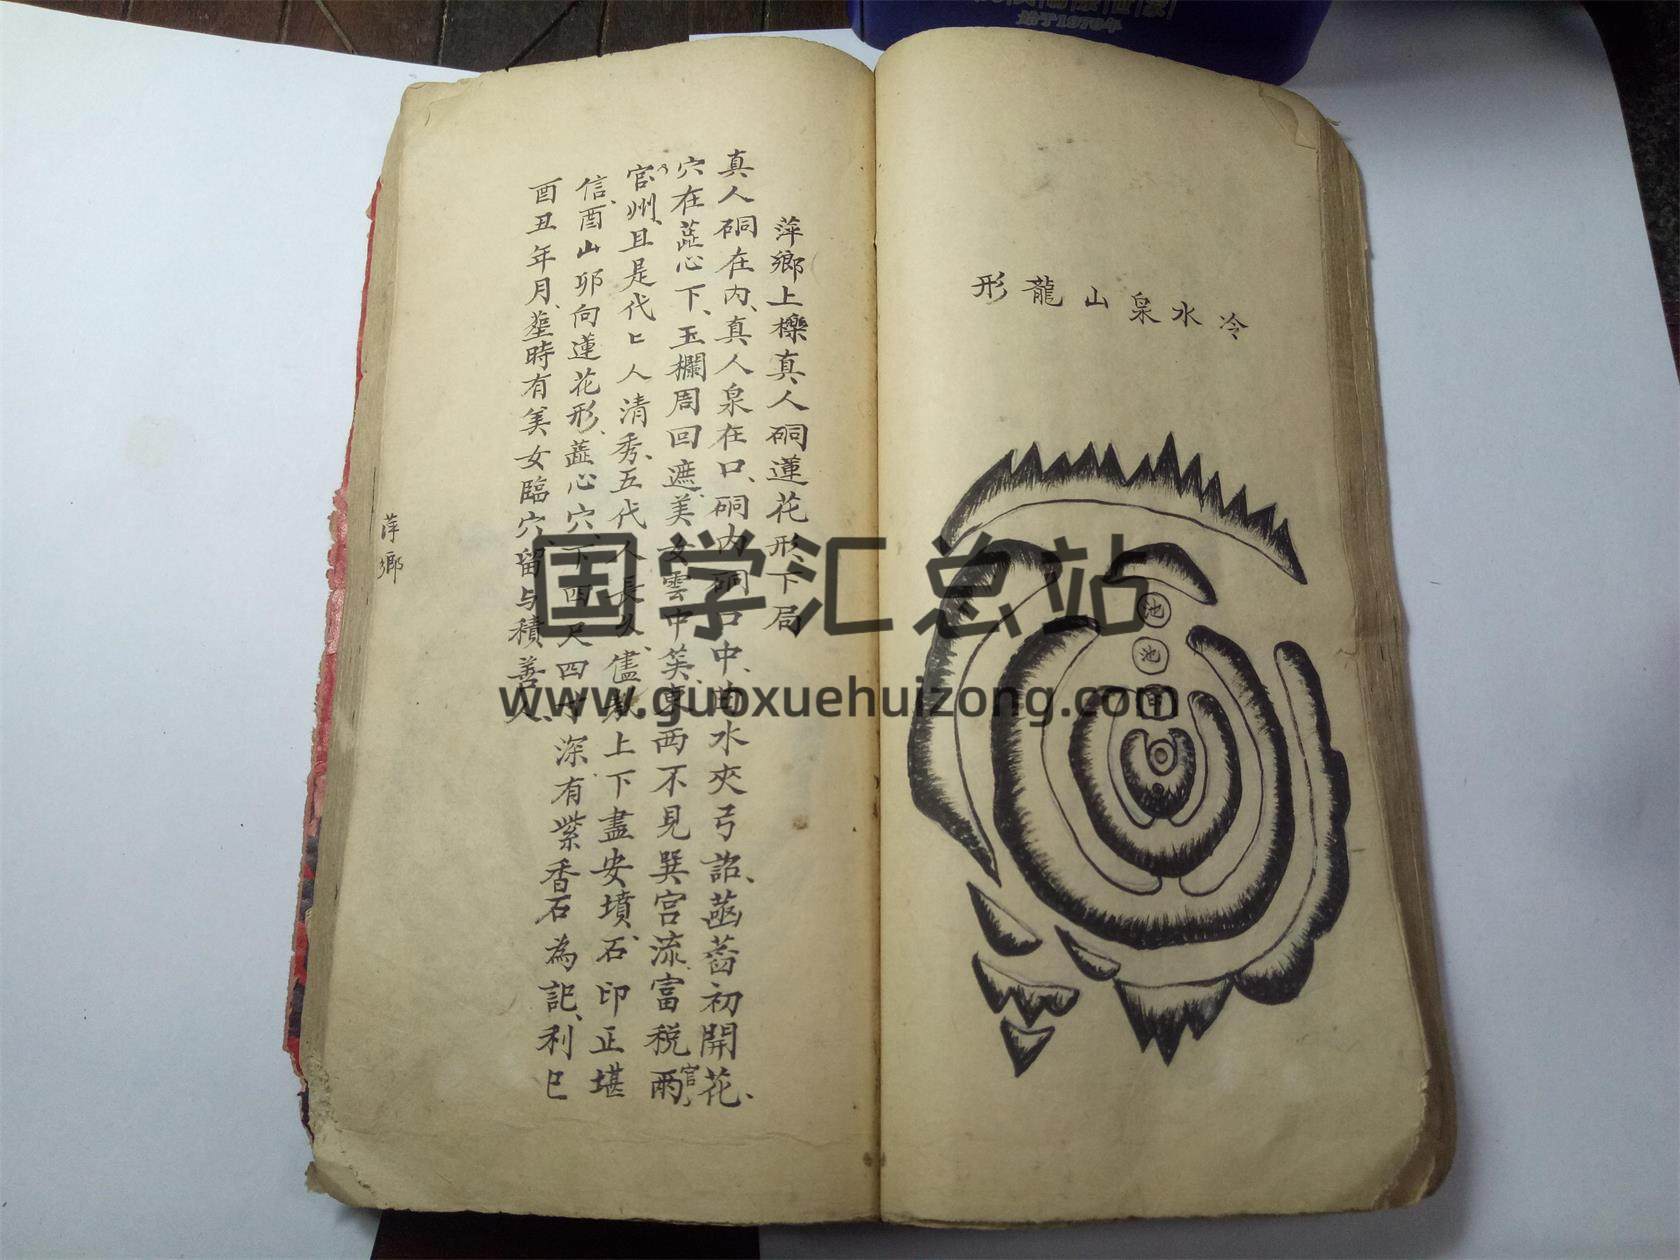 冷水泉山龍形
池
池
萍鄉上櫟真人硐蓮花形下局
真人硐在内、真人泉在口、硐内硐口中、曲水夾弓詔、菡萏初開花、
穴在蕋心下、玉欄周回遮、美女雲中笑、東西不見巽宮流、富税兩
官州、且是代匕人清秀、五代人長久、儘教上下盡安墳、石印正堪
信、酉山卯向蓮花形、蕋心穴、下四尺四寸深有紫香石為記、利巳
酉丑年月、塟時有美女臨穴、留与積善人、
官
萍鄉
国学汇总站
www.guoxuehuizong.com
始于1978年